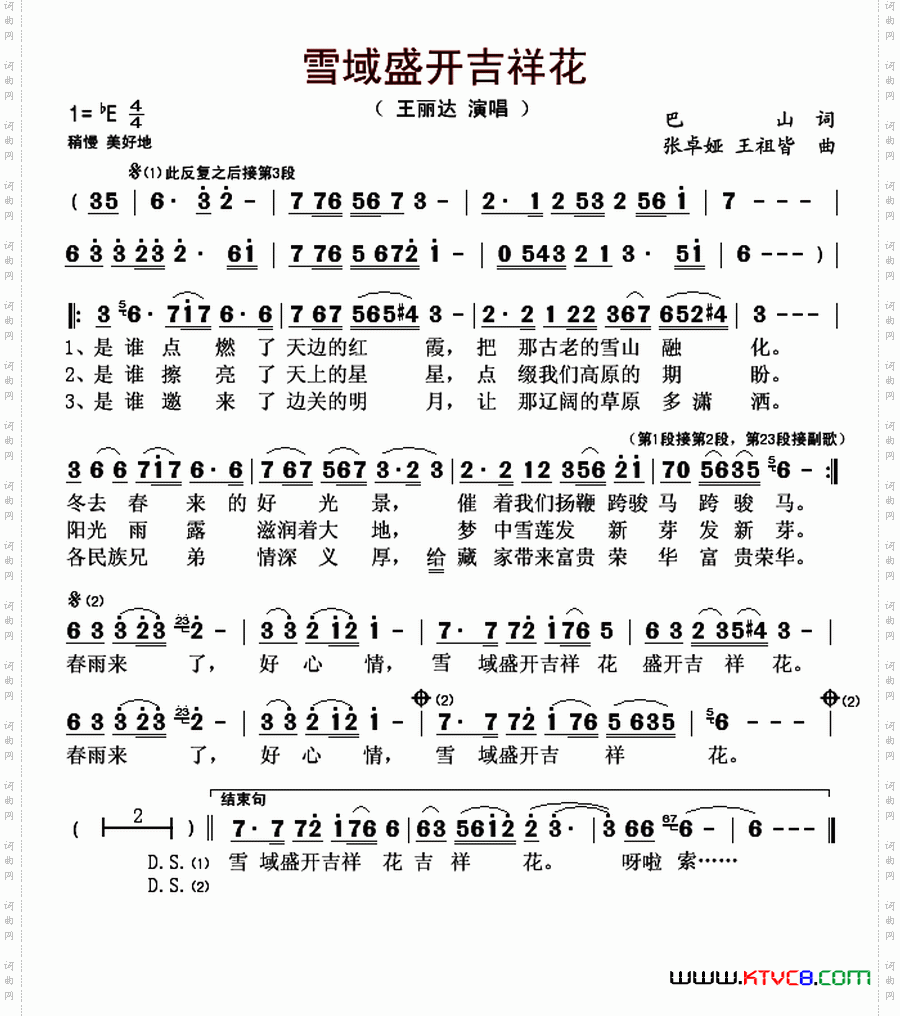 雪域盛开吉祥花
1= ♭E 4/4
（ 王丽达 演唱 ）
巴 山 词
稍慢 美好地
张卓娅 王祖皆 曲
𝄋(1)此反复之后接第3段
( 35 | 6· 3 2 - | 7 76 56 7 3 - | 2· 1 2 53 2 56 1 | 7 - - - |
6 3 3 23 2· 61 | 7 76 5 672 1 - | 0 543 2 1 3· 51 | 6 - - - ) |
|: 3 5 6· 717 6· 6 | 7 67 565#4 3 - | 2· 2 1 22 367 652#4 | 3 - - - |
1、是谁 点 燃 了 天边的红 霞，把 那古老的雪山 融 化。
2、是谁 擦 亮 了 天上的星 星，点 缀我们高原的 期 盼。
3、是谁 邀 来 了 边关的明 月，让 那辽阔的草原 多 潇 洒。
（第1段接第2段，第23段接副歌）
3 6 6 717 6· 6 | 7 67 567 3·2 3 | 2· 2 12 356 21 | 70 5635 5 6 - :|
冬去 春 来 的 好 光 景， 催 着我们扬鞭 跨骏 马 跨 骏 马。
阳光 雨 露 滋润着大 地， 梦 中雪莲发 新 芽 发 新 芽。
各民族兄 弟 情深 义 厚，给 藏 家带来富贵 荣 华 富 贵荣华。
𝄋(2)
6 3 3 23 23 2 - | 3 3 2 12 1 - | 7· 7 72 176 5 | 6 3 2 35#4 3 - |
春雨来 了， 好 心 情， 雪 域盛开吉祥 花 盛开吉 祥 花。
𝄌(2) 𝄌(2)
6 3 3 23 23 2 - | 3 3 2 12 1 - | 7· 7 72 1 76 5 635 | 5 6 - - - |
春雨来 了， 好 心 情， 雪 域盛开吉 祥 花。
结束句
( 2 ) ‖ 7· 7 72 176 6 | 63 5612 2 3· | 3 66 67 6 - | 6 - - - ‖
D.S.(1) 雪 域盛开吉祥 花 吉 祥 花。 呀啦 索……
D.S.(2)
www.KTVC8.com
词曲网